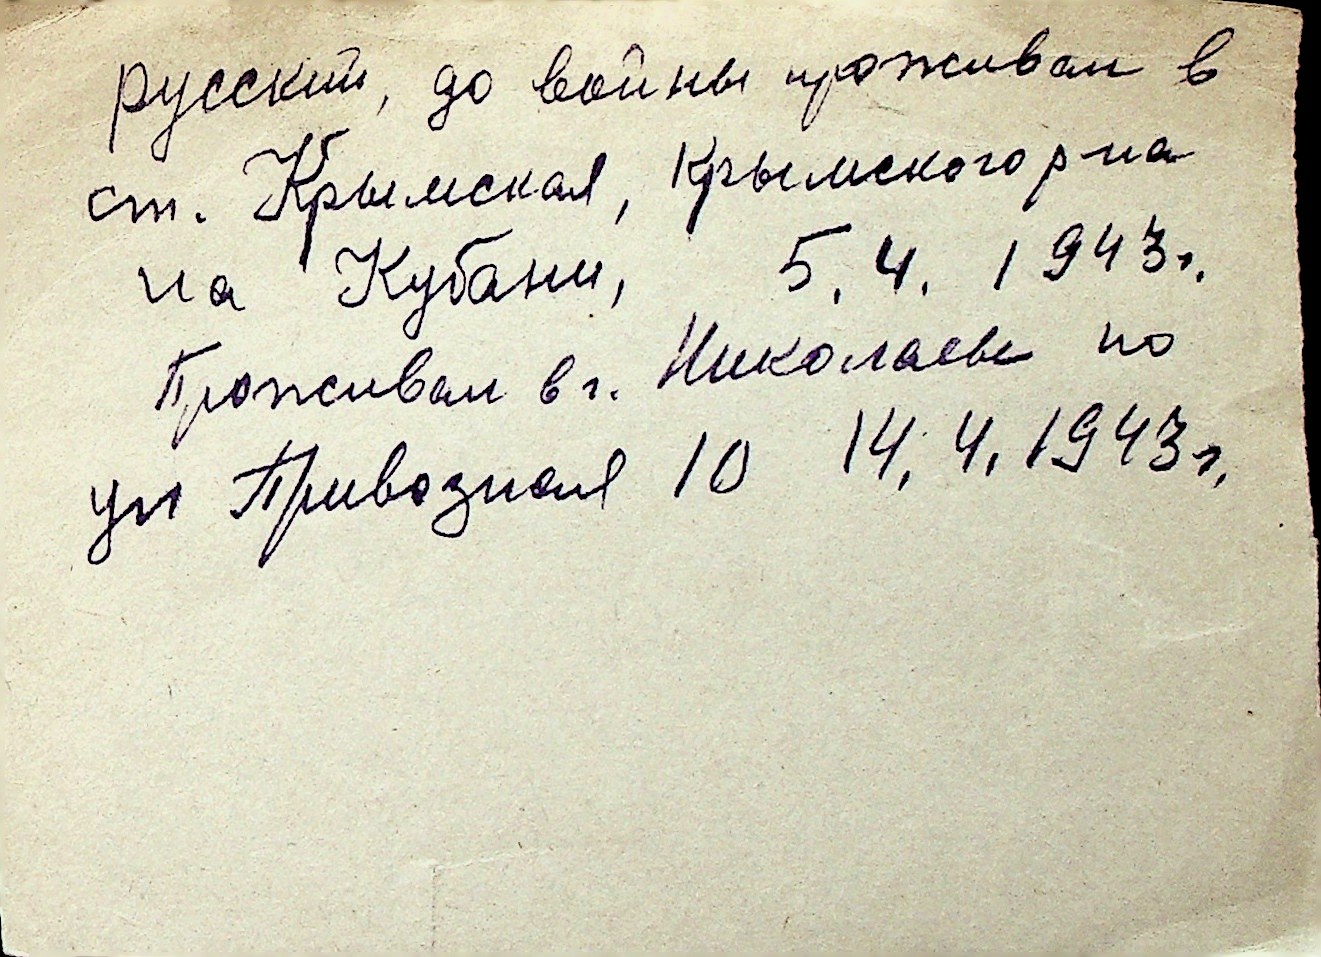 русский, до войны проживал в
ст. Крымская, Крымского р-на
на Кубани, 5.4.1943г.
Проживал в г. Николаеве по
ул Привозная 10 14.4.1943г.